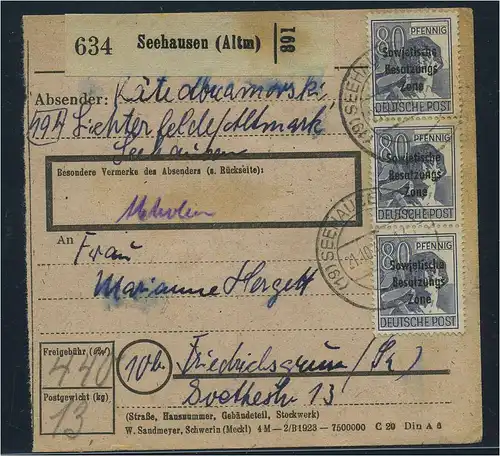 634 Seehausen (Altm) 891
Absender: Käte
19A Lichterfelde/Altmark
Seehausen
Besondere Vermerke des Absenders (s. Rückseite):
An Frau
Marianne Hergett
10b Friedrichsgrün (Sa)
Goethestr 13
(Straße, Hausnummer, Gebäudeteil, Stockwerk)
W. Sandmeyer, Schwerin (Meckl) 4 M—2/B1923 — 7500000 C 20 Din A 6
Freigebühr
440
Postgewicht (kg)
13
80 PFENNIG
Sowjetische
Besatzungs
Zone
DEUTSCHE POST
80 PFENNIG
Sowjetische
Besatzungs
Zone
DEUTSCHE POST
80 PFENNIG
Sowjetische
Besatzungs
Zone
DEUTSCHE POST
(19) SEEHAUSEN